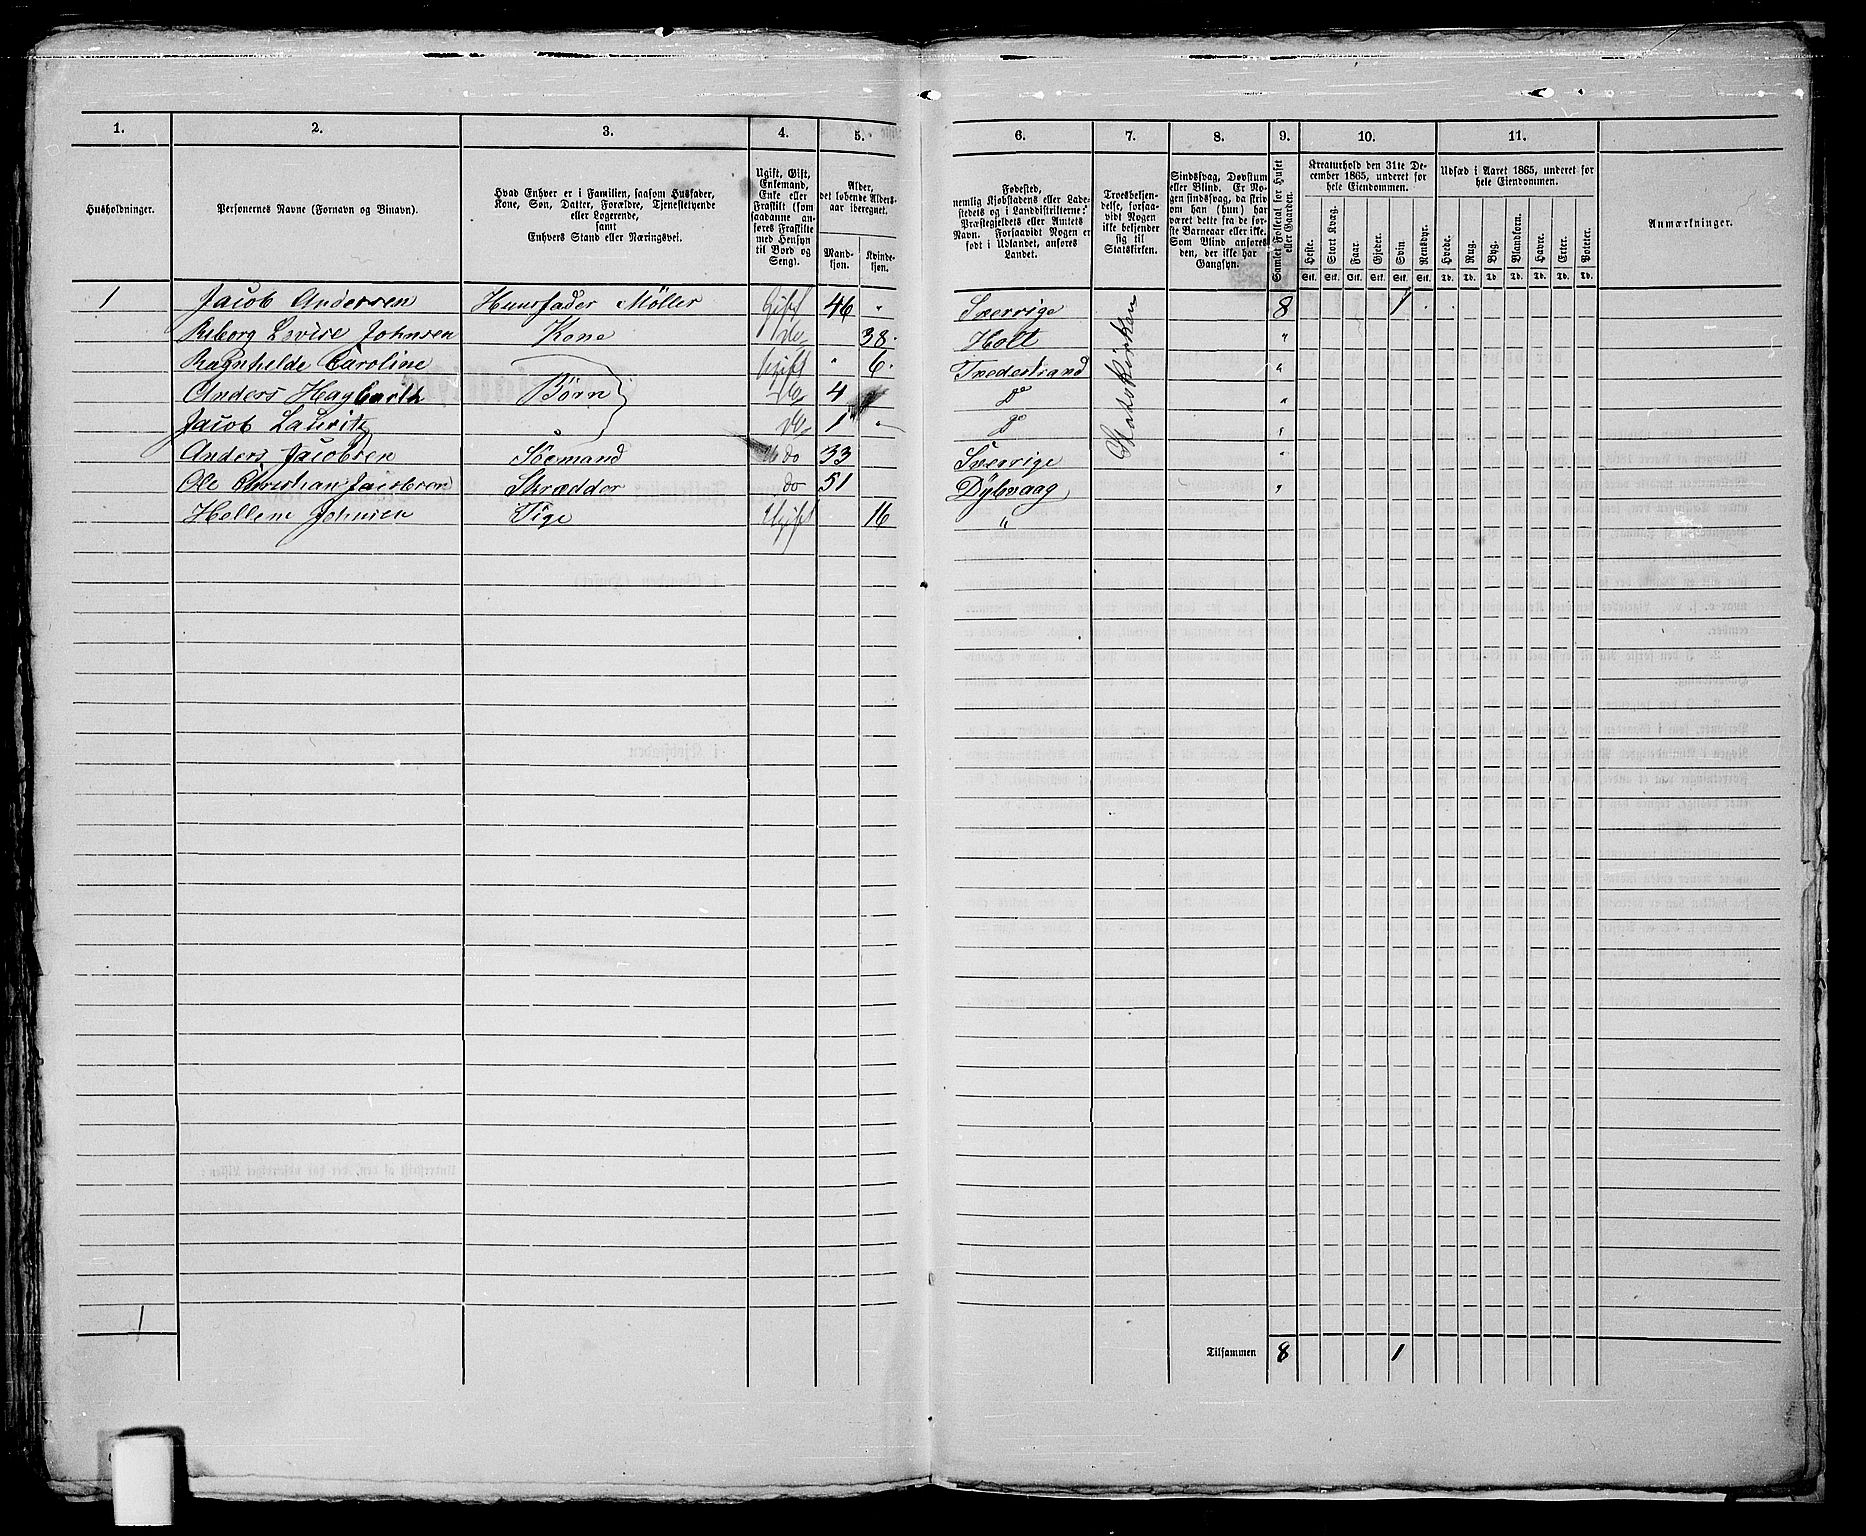 1. 2. 3. 4. 5. 6. 7. 8. 9. 10. 11.
Husholdninger.
Personernes Navne (Fornavn og Binavn).
Hvad Enhver er i Familien, saasom Husfader,
Kone, Søn, Datter, Forældre, Tjenestetyende
eller Logerende,
samt
Enhvers Stand eller Næringsvei.
Ugift, Gift,
Enkemand,
Enke eller
Fraskilt (som
saadanne an-
føres Fraskilte
med Hensyn
til Bord og
Seng).
Alder,
det løbende Alders-
aar iberegnet.
Mand-
kjøn.
Kvinde-
kjøn.
Fødested,
nemlig Kjøbstadens eller Lade-
stedets og i Landdistrikterne:
Præstegjeldets eller Amtets
Navn. Forsaavidt Nogen er
født i Udlandet, anføres
Landet.
Troesbekjen-
delse, forsaa-
vidt Nogen
ikke bekjender
sig til
Statskirken.
Sindssvag, Døvstum
eller Blind. Er No-
gen sindssvag, da skriv
om han (hun) har
været dette fra de før-
ste Barneaar eller ikke.
Som Blind anføres
den, der ikke har
Gangsyn.
Samlet Folketal for Huset
eller Gaarden.
Kreaturhold den 31te De-
cember 1865, underet for
hele Eiendommen.
Heste. Stort Kvæg. Faar. Gjeder. Svin. Rensdyr.
Stk. Stk. Stk. Stk. Stk. Stk.
Udsæd i Aaret 1865, underet for
hele Eiendommen.
Hvede. Rug. Byg. Blandkorn. Havre. Erter. Poteter.
Td. Td. Td. Td. Td. Td. Td.
Anmærkninger.
1 Jacob Andersen Huusfader Møller Gift 46 " Sverrige Statskirken 8 1
Lovise Johnsen Kone do 38 Holt "
Ragnhelde Caroline Ugift " 6 Tvedestrand "
Anders Hagbarth Børn do 4 do "
Jacob Lauritz do 1 " do "
Anders Jacobsen Sømand do 33 Sverrige "
Ole Christian Jacobsen Skrædder do 51 Dybvaag "
Hellene Johnsen Pige Ugift 16 "
1 Tilsammen 8 1